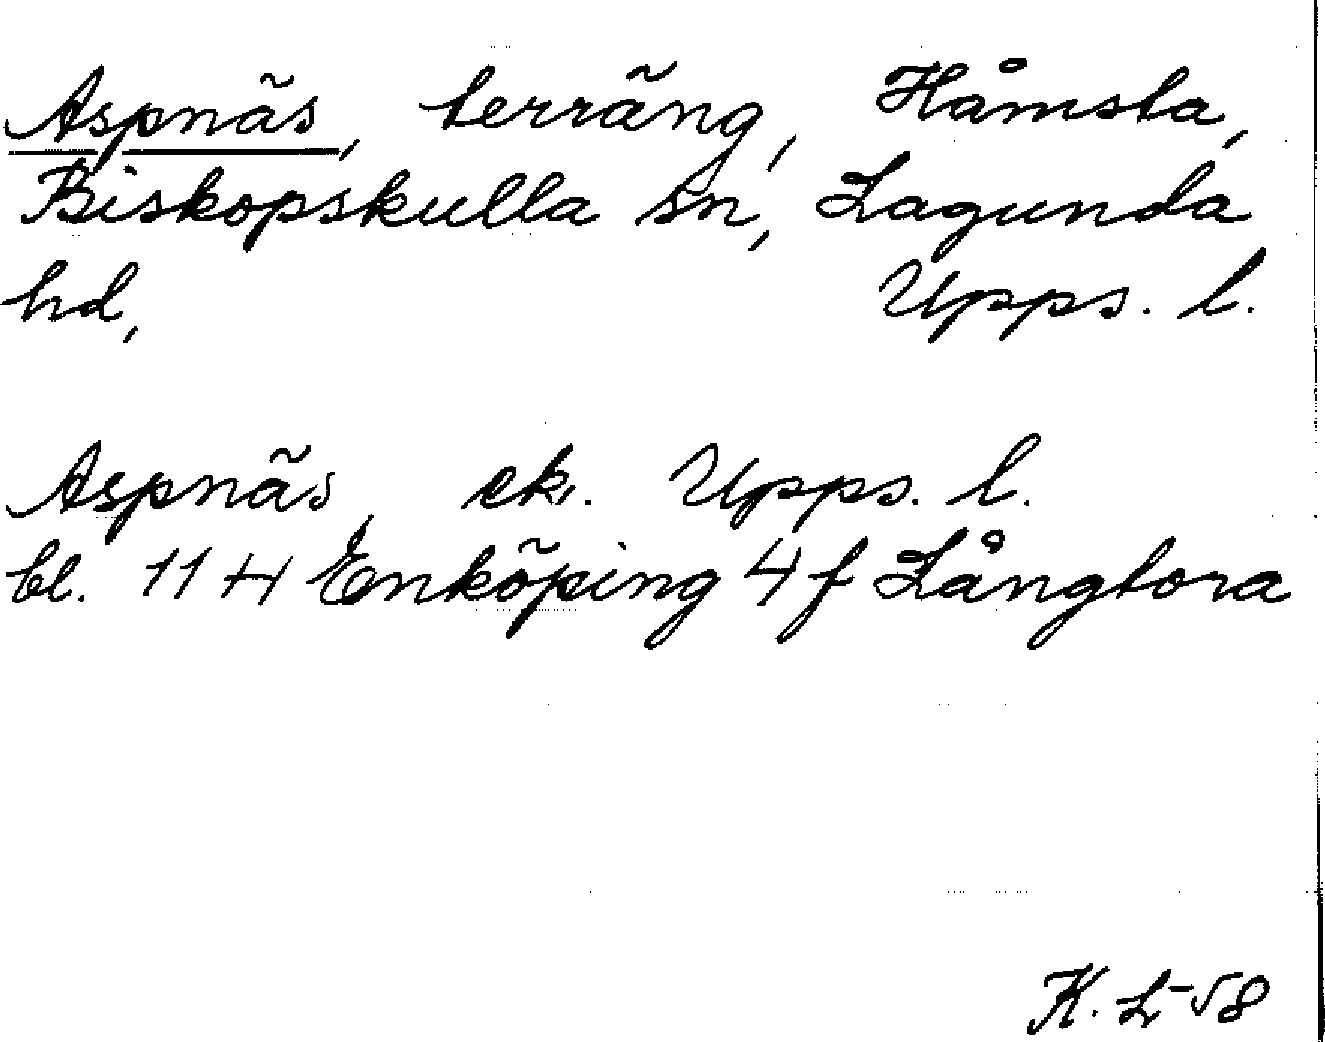 Aspnäs, terräng, Håmsta,
Biskopskulla sn, Lagunda
hd, Upps. l.
Aspnäs, ek. Upps. l.
bl. 11 H Enköping 4 f Långtora
K. L-58